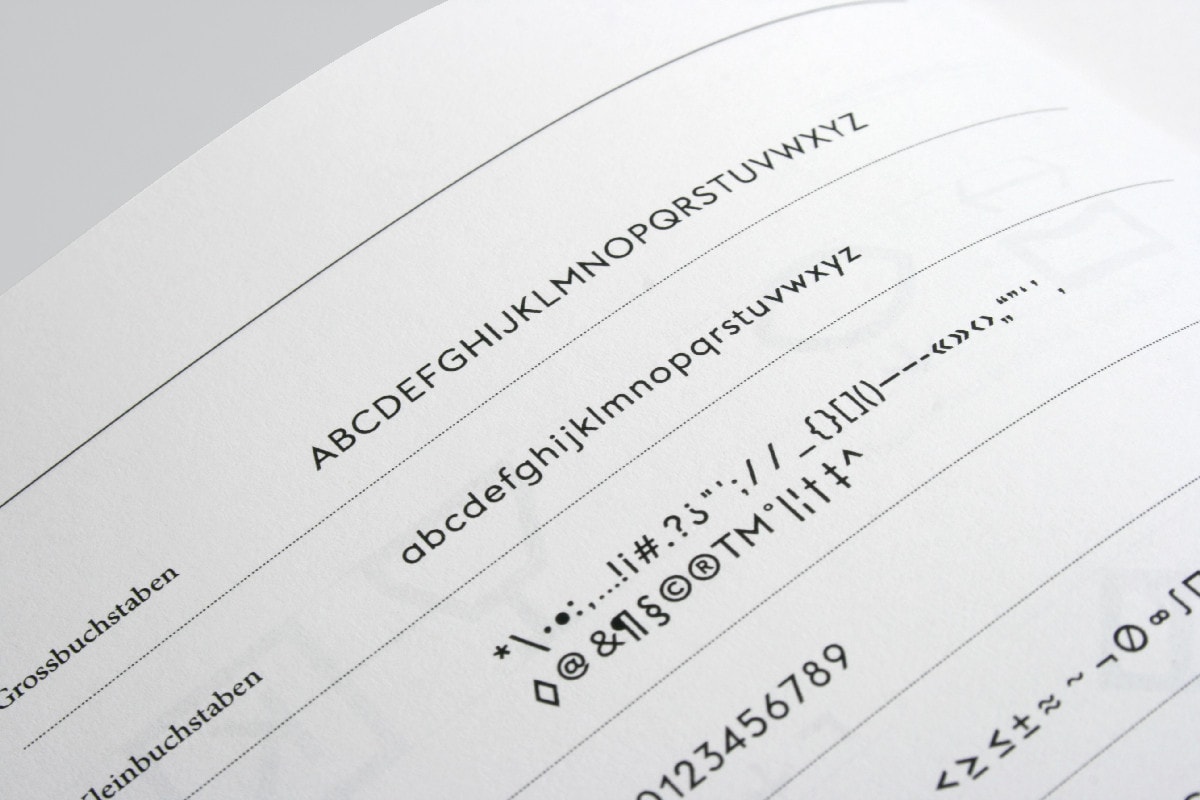 Grossbuchstaben
ABCDEFGHIJKLMNOPQRSTUVWXYZ
Kleinbuchstaben
abcdefghijklmnopqrstuvwxyz
*\·•:,...!¡#.?¿"';// _{}[]()—–-«»‹›„“”‘’‚
◊@&¶§©®™°|¦†‡^
0123456789
<≥≤±≈~¬∅∞∫